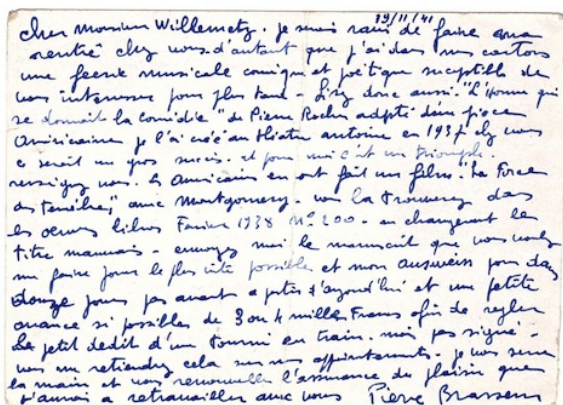 19/11/41
cher Monsieur Willemetz. je serais ravi de faire ma
rentré chez vous. d'autant que j'ai dans mes cartons
une feerie musicale comique et poëtique suceptible de
vous interesser pour plus tard - Lisez donc aussi "L'Homme qui
se donnait la comédie" de Pierre Rocher adapté d'une pièce
Américaine je l'ai créé au théatre antoine en 1937 chez vous
ce serait un gros succès. et pour moi c'est un triomphe.
renseignez vous. les Americains en ont fait un film. "La Force
des Tenèbres" avec Montgomery. vous la trouverez dans
les oeuvres libres Fevrier 1938 N° 200 - en changeant le
titre mauvais - envoyez moi le manuscrit que vous voulez
me faire jouer le plus vite possible et mon ausweiss pour dans
douze jours pas avant a partir d'aujourd'hui et une petite
avance si possible de 3 ou 4 mille Francs afin de regler
le petit dedit d'une tourné en train. mais pas signé -
vous me retiendrez cela sur mes appointements. je vous serre
la main et vous renouvelle l'assurance du plaisir que
j'aurais a retravailler avec vous Pierre Brasseur